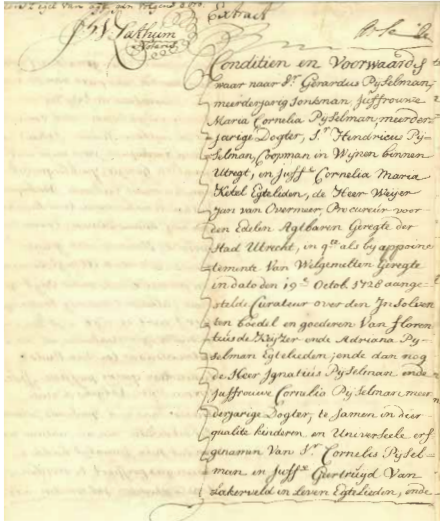 Extract
Sakhum
Notaris
Conditien en Voorwaard
waar naar Sr. Gerardus Pyselman,
meerderjarig Jonkman, Juffrouwe
Maria Cornelia Pyselman, meerder
jarige Dogter, Sr. Hendricus Py-
selman, Coopman in Wynen binnen
Utregt, en Juffe. Cornelia Maria
Ketel Egteleiden, de Heer Weyer
Jan van Overmeer, Procureur voor
den Edelen Agtbaren Geregte der
Stad Utrecht, in qte. als by appoinc
temente van Welgemelten Geregte
in dato den 19e. Octob. 1728 aange-
stelde Curateur over den Insolven
ten boedel en goederen van Floren
tius de Keyzer ende Adriana Py-
selman Egtelieden; ende dan nog
de Heer Ignatius Pyselman ende
Juffrouwe Cornelia Pyselman meer
derjarige Dogter, te samen in deer
qualite kinderen en Universeele erf
genamen van Sr. Cornelis Pysel-
man en Juffe. Geertruyd van
Lakerveld in Leven Egtelieden, ende